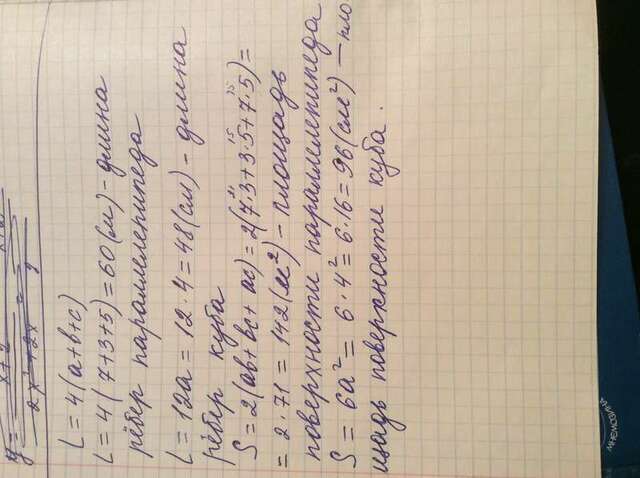 L = 4(a+b+c)
L = 4(7+3+5)=60(м) - длина
рёбер параллелепипеда
L = 12a = 12·4=48(см) - длина
рёбер куба
S = 2(ab+bc+ac)=2(7·3+3·5+7·5)=
21 15 35
= 2·71 = 142(м²) - площадь
поверхности параллелепипеда
S = 6a² = 6·4² = 6·16=96(см²) - пло
щадь поверхности куба.
МНЕМОЗИНА